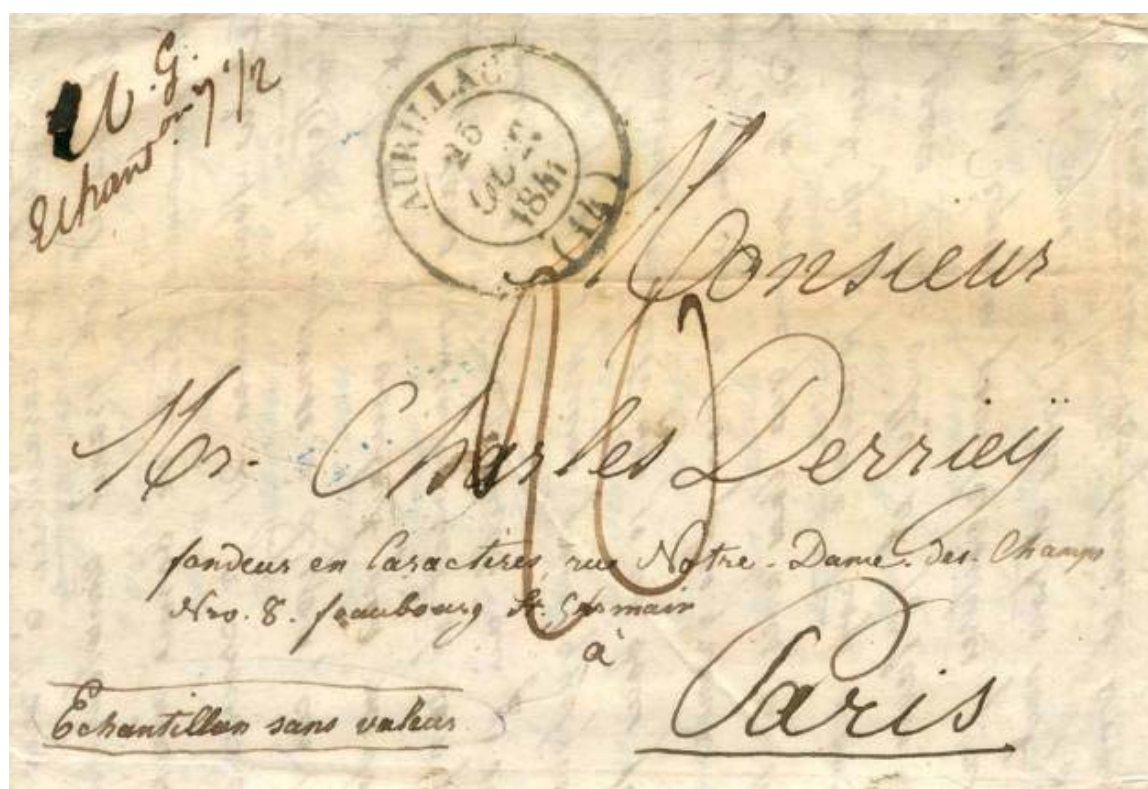 G.
Echant. on 7 1/2
AURILLAC
25
OCT
1841
(14)
Monsieur
Mr. Charles Derrieÿ
fondeur en Caractères, rue Notre-Dame-des-Champs
Nro. 8. feaubourg St. Germain
à
Paris
Echantillon sans valeur